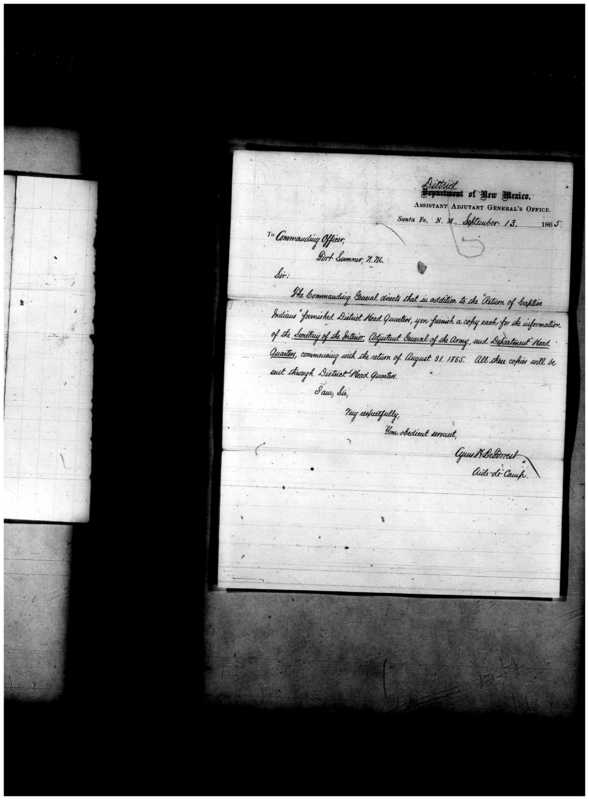 District
Department of New Mexico,
ASSISTANT ADJUTANT GENERAL'S OFFICE.
Santa Fe, N. M. September 13. 1865.
To Commanding Officer,
Fort Sumner, N. M.
Sir:
The Commanding General directs that in addition to the "Return of Captive
Indians" furnished District Head Quarters, you furnish a copy each for the information
of the Secretary of the Interior, Adjutant General of the Army, and Department Head
Quarters, commencing with the return of August 31. 1865. All these copies will be
sent through District Head Quarters.
I am, Sir,
Very respectfully,
Your obedient servant,
Cyrus H. DeForrest
Aide-de-Camp.